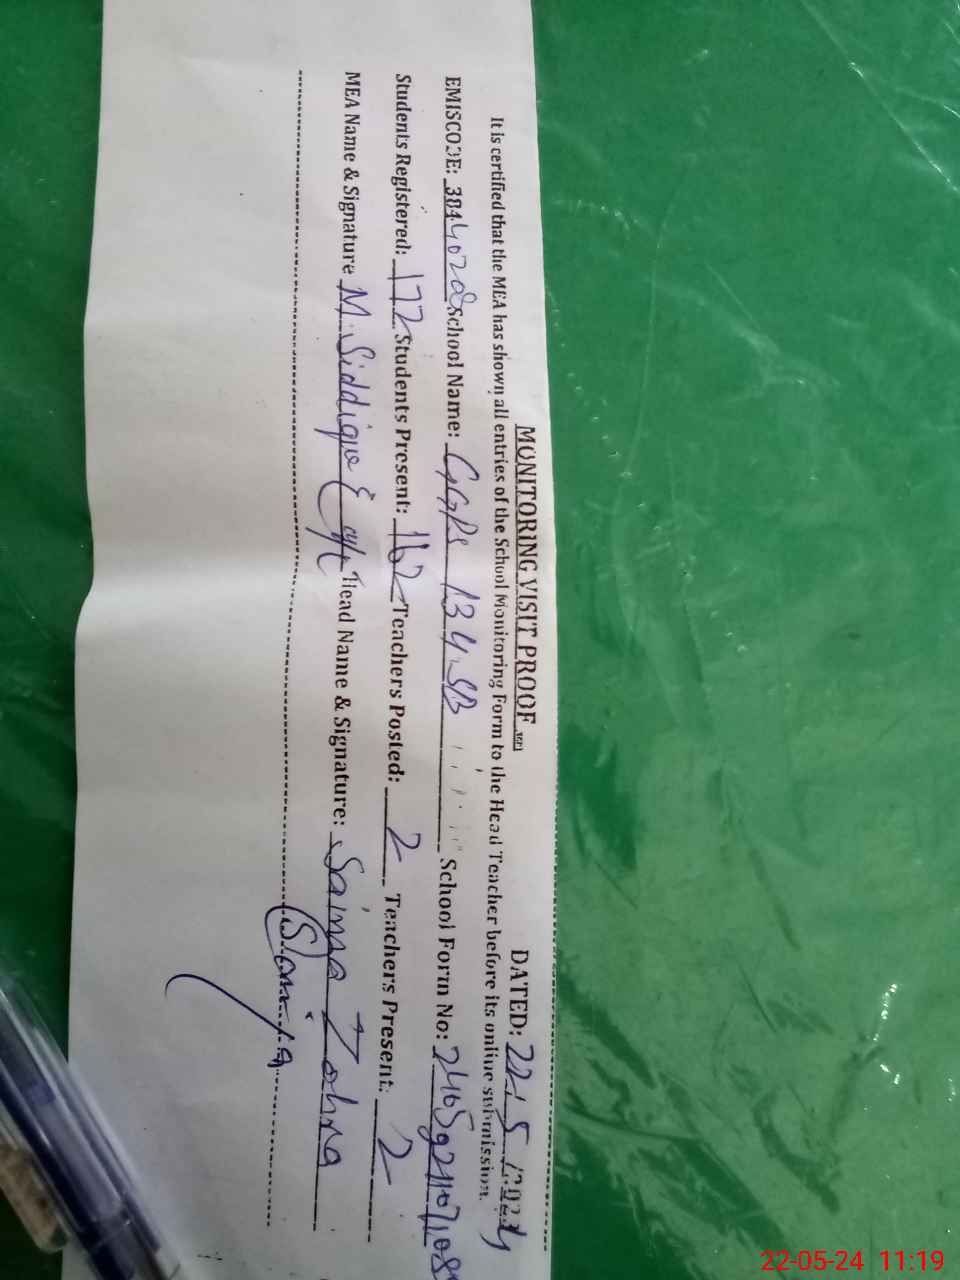 MONITORING VISIT PROOF DATED: 22/5/2024
It is certified that the MEA has shown all entries of the School Monitoring Form to the Head Teacher before its online submission.
EMISCODE: 38440208 School Name: GGPS 134.SB School Form No:
Students Registered: 172 Students Present: 162 Teachers Posted: 2 Teachers Present: 2
MEA Name & Signature M. Siddique Head Name & Signature: Saima Zohra
22-05-24 11:19